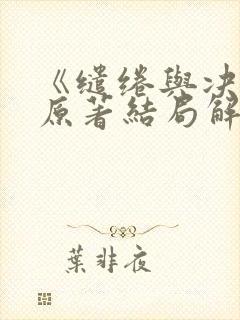 《缱绻與決
原著結局解
葉非夜